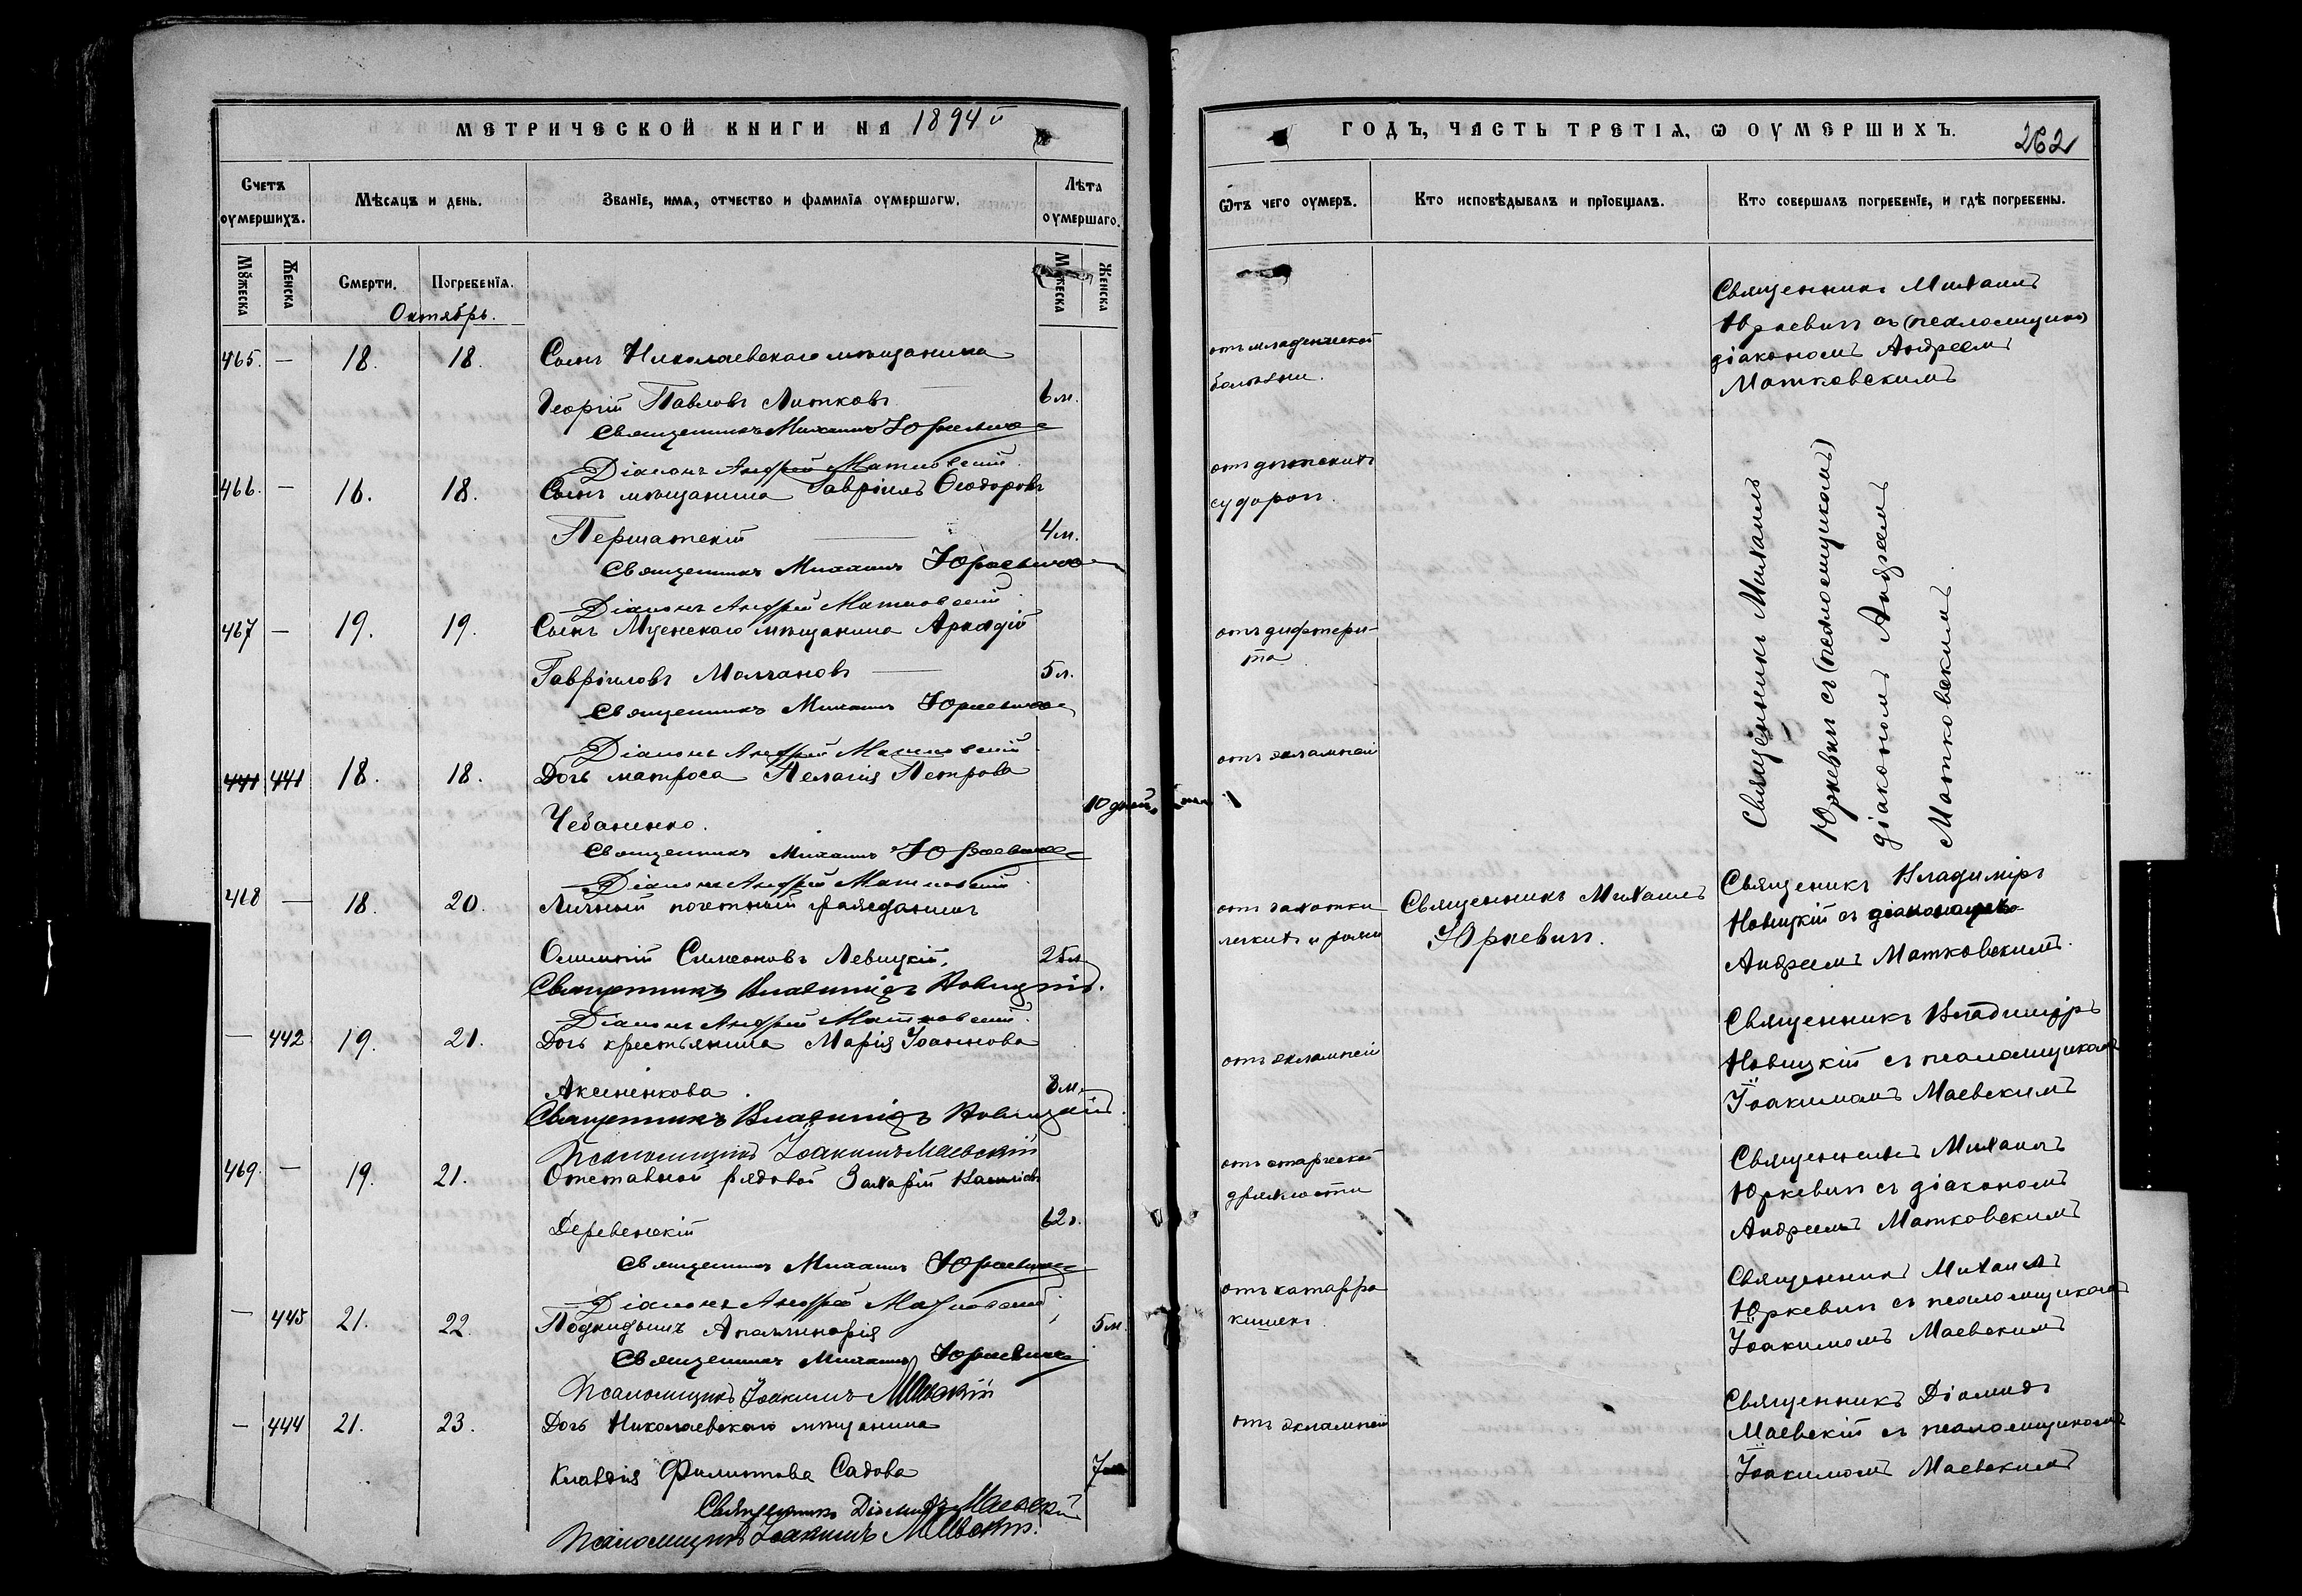 МЕТРИЧЕСКОЙ КНИГИ НА 1894й
Счетъ оумершихъ.
Мѣсяцъ и день.
Званіе, имя, отчество и фамилія оумершагω.
Лѣта оумершаго.
Мужеска
Женска
Смерти.
Погребенія.
Мужеска
Женска
Октябрь.
465. — 18. 18. Сынъ Николаевскаго мѣщанина
Георгій Павловъ Литковъ 6 м.
Священникъ Михаилъ Юркевичъ
Діаконъ Андрей Матковскій
466. — 16. 18. Сынъ мѣщанина Гавріилъ Ѳеодоровъ
Першатскій 4 м.
Священникъ Михаилъ Юркевичъ
Діаконъ Андрей Матковскій
467 — 19. 19. Сынъ Мценскаго мѣщанина Аркадій
Гавріиловъ Молчановъ 5 л.
Священникъ Михаилъ Юркевичъ
Діаконъ Андрей Матковскій
441 441 18. 18. Дочь матроса Пелагія Петрова
10 дней
Чебаненко.
Священникъ Михаилъ Юркевичъ
Діаконъ Андрей Матковскій
468 — 18. 20. Личный почетный гражданинъ
Симеоновъ Левицкій. 25 л.
Священникъ Владиміръ Новицкій.
Діаконъ Андрей Матковскій
— 442 19. 21. Дочь крестьянина Марія Іоаннова
Аксененкова. 8 м.
Священникъ Владиміръ Новицкій.
Псаломщикъ Іоакимъ Маевскій
469. — 19. 21. Отставной рядовой Захарій
Деревенскій 62 г.
Священникъ Михаилъ Юркевичъ
Діаконъ Андрей Матковскій
— 443 21. 22. Подкидышъ Аполлинарія 5 м.
Священникъ Михаилъ Юркевичъ
Псаломщикъ Іоакимъ Маевскій
— 444 21. 23. Дочь Николаевскаго мѣщанина
Клавдія Филиппова Садова 7
Священникъ Діомидъ Маевскій
Псаломщикъ Іоакимъ Маевскій.
ГОДЪ, ЧАСТЬ ТРЕТІЯ, Ѡ ОУМЕРШИХЪ.
262
Ѿтъ чего оумеръ.
Кто исповѣдывалъ и пріобщалъ.
Кто совершалъ погребеніе, и гдѣ погребены.
отъ младенческой
болѣзни.
Священникъ Михаилъ
Юркевичъ съ (псаломщик)
діакономъ Андреемъ
Матковскимъ
отъ дѣтскихъ
судорогъ.
отъ дифтери-
та
отъ эклампсіи
Священникъ Михаилъ
Юркевичъ съ (псаломщикомъ)
діакономъ Андреемъ
Матковскимъ.
отъ чахотки
легкихъ и
Священникъ Михаилъ
Юркевичъ.
Священикъ Владиміръ
Новицкій съ діакономъ
Андреемъ Матковскимъ.
отъ эклампсіи
Священникъ Владиміръ
Новицкій съ псаломщикомъ
Іоакимомъ Маевскимъ
отъ старческой
дряхлости
Священникъ Михаилъ
Юркевичъ съ діакономъ
Андреемъ Матковскимъ
отъ катарра
кишекъ.
Священникъ Михаилъ
Юркевичъ съ псаломщикомъ
Іоакимомъ Маевскимъ
отъ эклампсіи
Священникъ Діомидъ
Маевскій съ псаломщикомъ
Іоакимомъ Маевскимъ